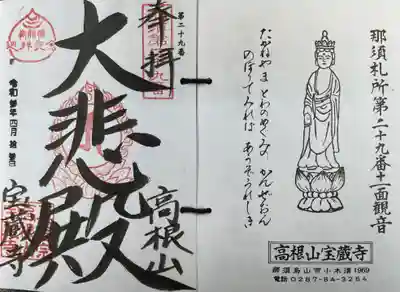 那須札所第二十九番十一面観音
たかねやま とわのめぐみの かんぜおん
のぼりてみれば あうぞうれしき
高根山宝蔵寺
那須烏山市小木須1969
電話0287-84-3264
第二十九番
奉拝
大悲殿
高根山
宝蔵寺
令和 年四月 日